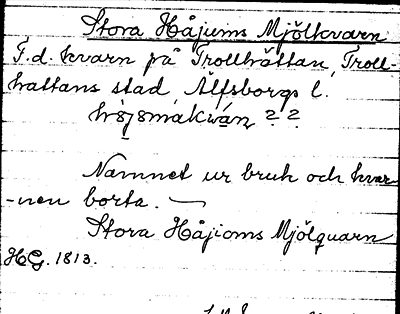 Stora Håjums Mjölkvarn
F.d. kvarn på Trollhättan, Troll-
hättans stad Älfsborgs l.
Namnet ur bruk och kvar-
-nen borta.
Stora Håjioms Mjölquarn
HG. 1813.